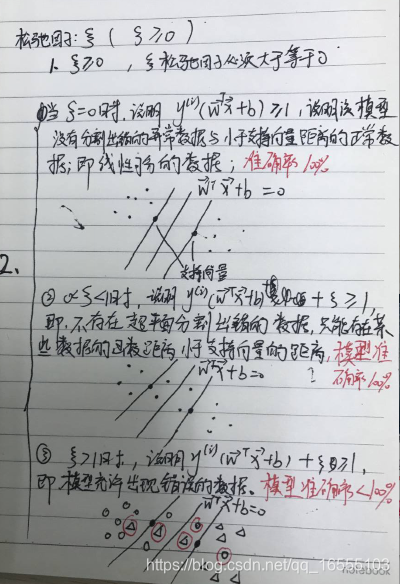 松弛因子: ξ ( ξ ≥0 )
1. ξ≥0 , ξ 松弛因子必须大于等于0
①当 ξ=0时, 说明 y⁽ⁱ⁾(w⃗ᵀx⃗+b) ≥1, 说明该模型
没有分割出错的异常数据与小于支持向量距离的正常数
据; 即线性可分的数据; 准确率100%
w⃗ᵀx⃗+b =0
支持向量
2.
② 0<ξ<1时, 说明 y⁽ⁱ⁾(w⃗ᵀx⃗+b) + ξ ≥1,
即, 不存在超平面分割出错的数据, 只能存在某
些数据的函数距离小于支持向量的距离, 模型准
确率100%
w⃗ᵀx⃗+b=0
?
③ ξ>1时, 说明 y⁽ⁱ⁾(w⃗ᵀx⃗+b) + ξ ≥1,
即模型允许出现错误的数据。模型准确率<100%
w⃗ᵀx⃗+b=0
https://blog.csdn.net/qq_16555103